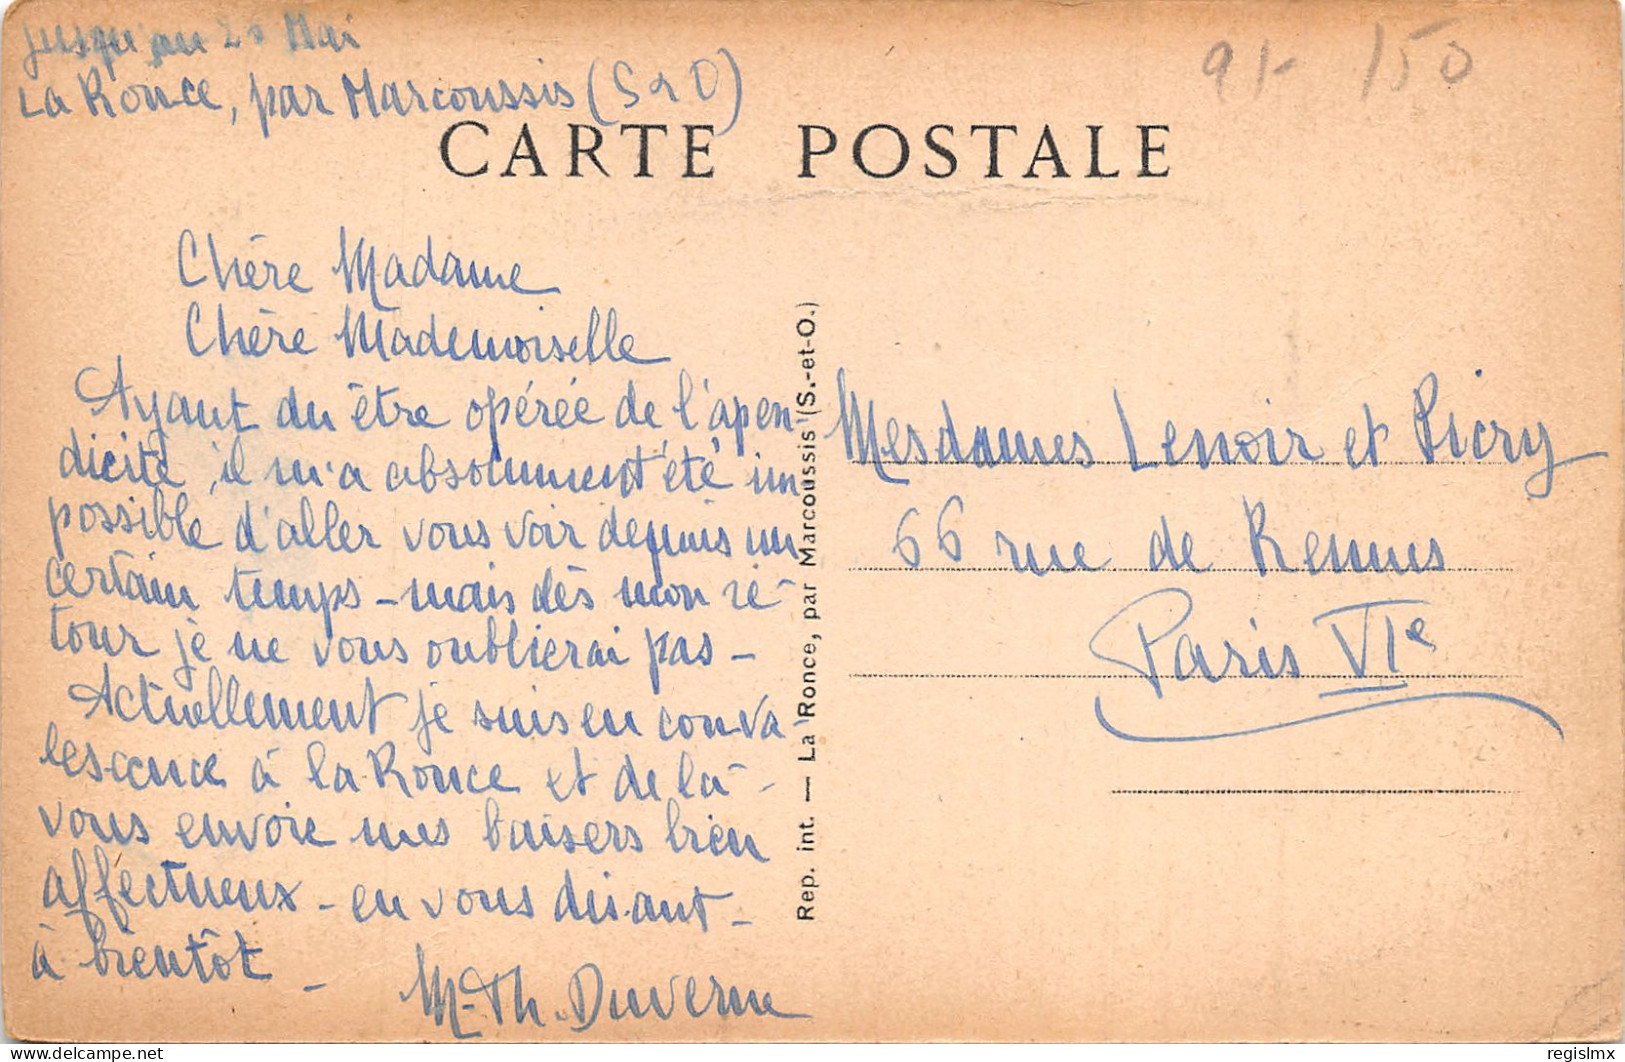 Jusqu'au 20 Mai
La Ronce, par Marcoussis (S & O)
91- 150
CARTE POSTALE
Chère Madame
Chère Mademoiselle
Ayant du être opérée de l'apen-
dicite, il m'a absolument été im
possible d'aller vous voir depuis un
certain temps - mais dès mon re-
tour je ne vous oublierai pas -
Actuellement je suis en conva-
lescence à la Ronce et de là -
vous envoie mes baisers bien
affectueux - en vous disant -
à bientôt -
M-Th. Duverne
Rep. int. — La Ronce, par Marcoussis (S.-et-O.)
Mesdames Lenoir et Picry
66 rue de Rennes
Paris VIe
delcampe.net
regislmx